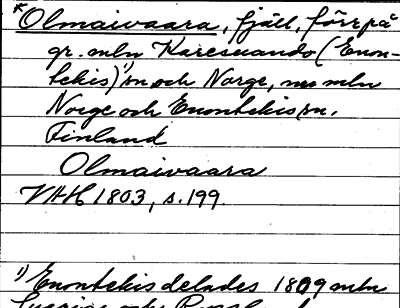 *Olmaivaara, fjäll, förr på
gr. mln Karesuando (Enon-
tekis)¹⁾sn och Norge, nu mln
Norge och Enontekis sn,
Finland
Olmaivaara
VAH 1803, s. 199
¹⁾ Enontekis delades 1809 mln
Sverige och Ryssland